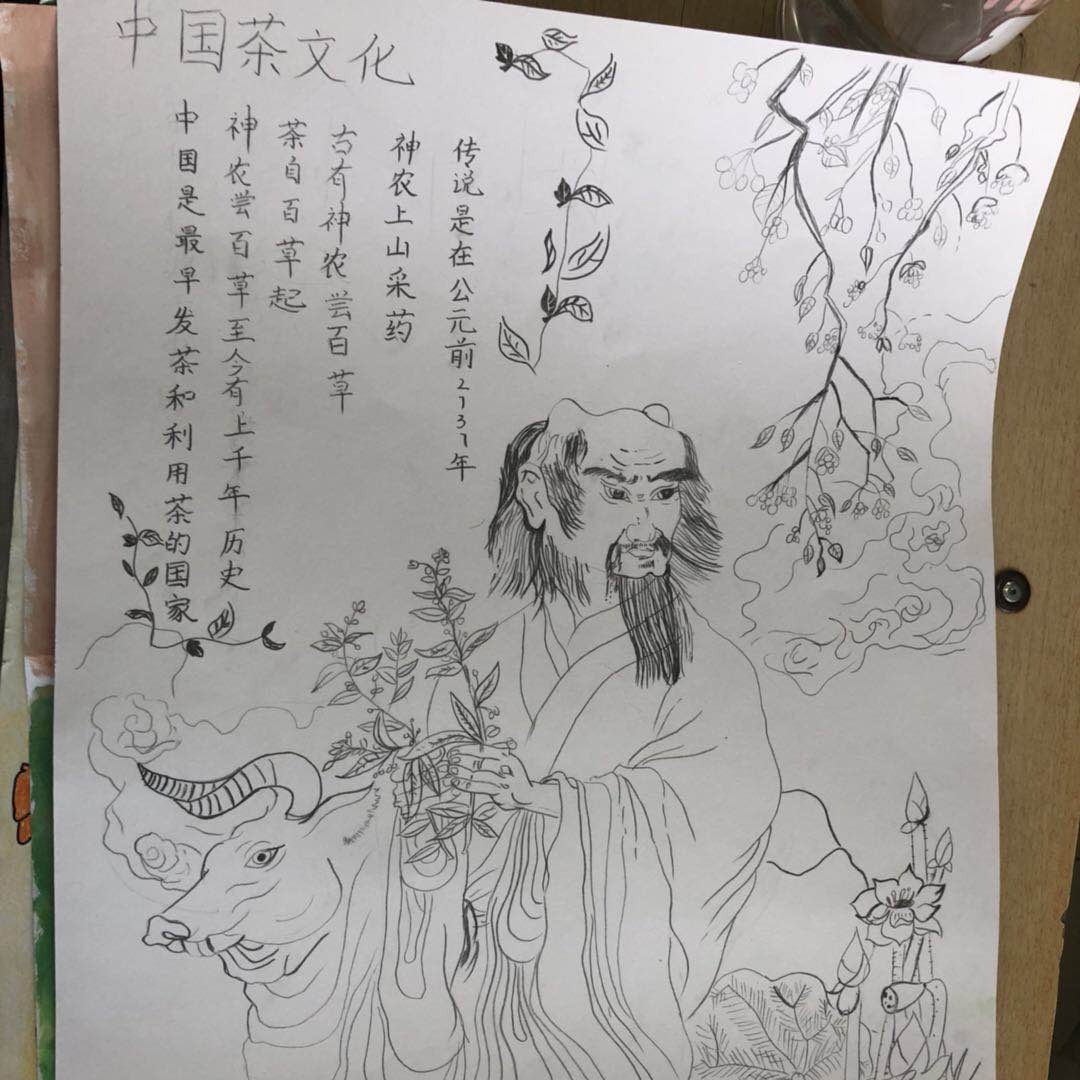 中国茶文化
传说是在公元前2737年
神农上山采药
古有神农尝百草
茶自百草起
神农尝百草至今有上千年历史
中国是最早发茶和利用茶的国家